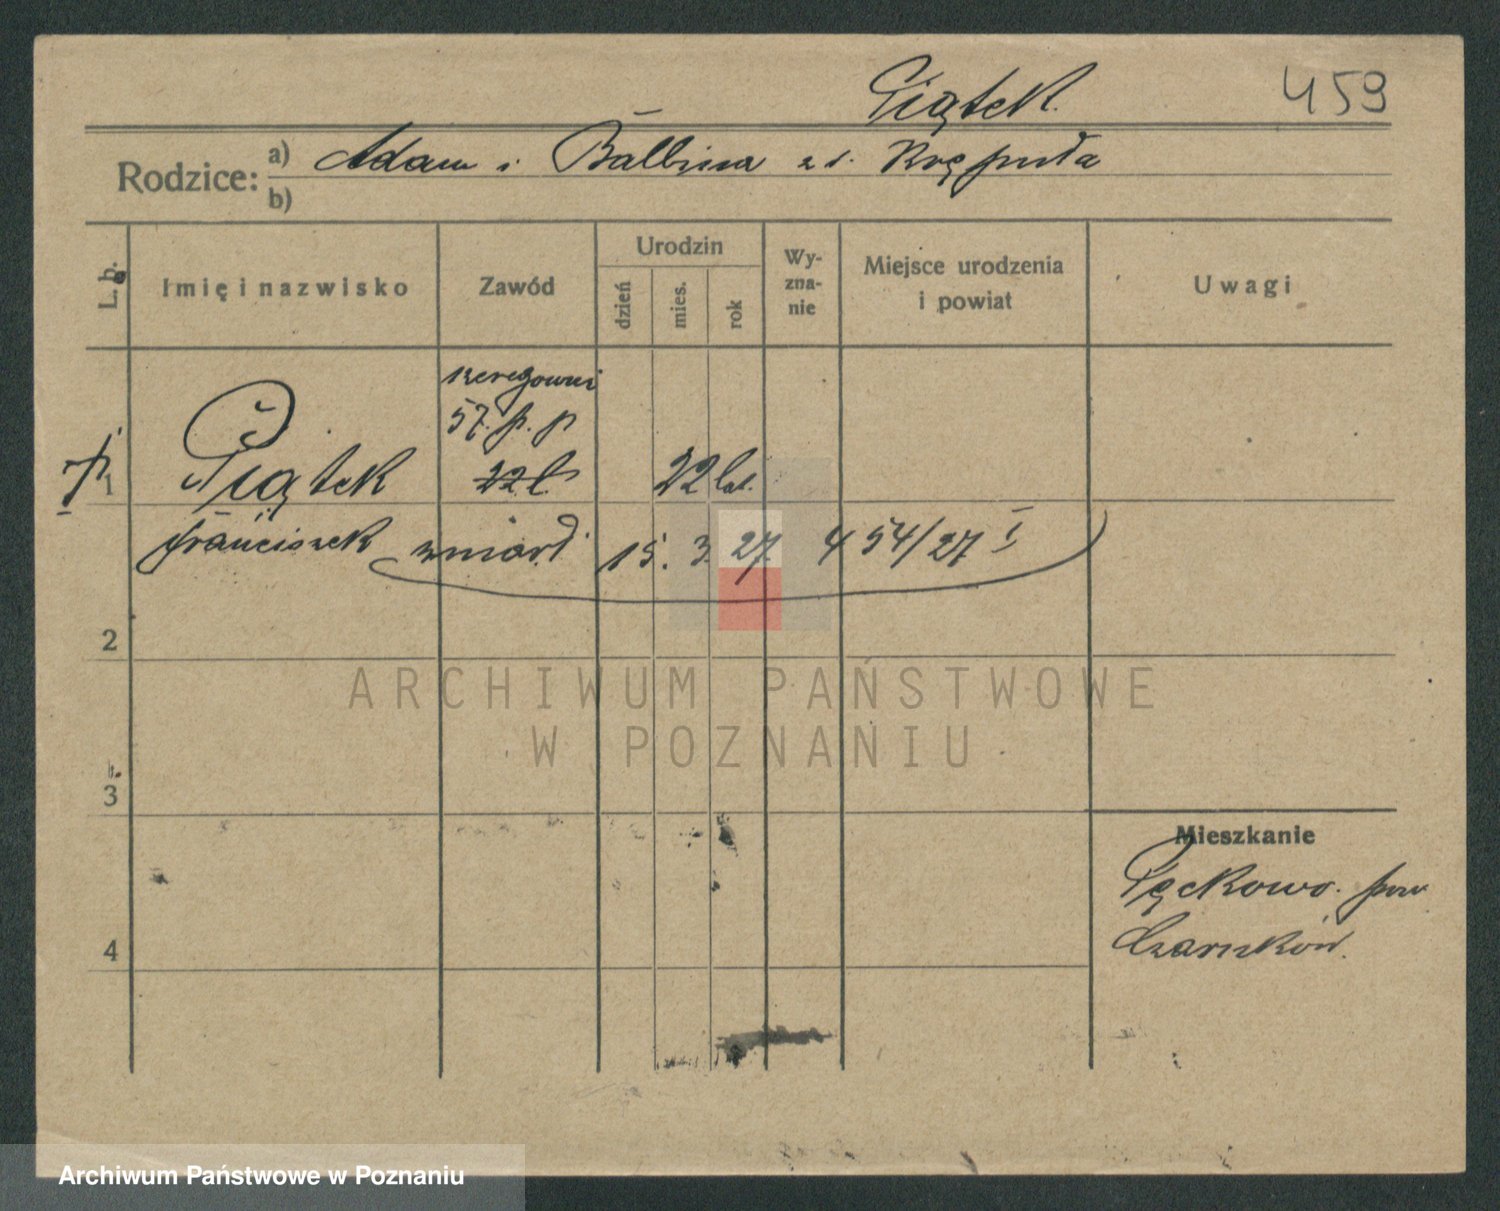 Piątek. 459
Rodzice: a) Adam i Balbina zd. Krępuła
b)
L. b. Imię i nazwisko Zawód Urodzin dzień mies. rok Wy-zna-nie Miejsce urodzenia i powiat Uwagi
szeregowiec
57. p. p
1 Piątek 22 l 22 lat.
Franciszek zmarł 15. 3. 27. 454/27 I
2
ARCHIWUM PAŃSTWOWE
W POZNANIU
3
Mieszkanie
Pęckowo. pow
4 Czarnków.
Archiwum Państwowe w Poznaniu